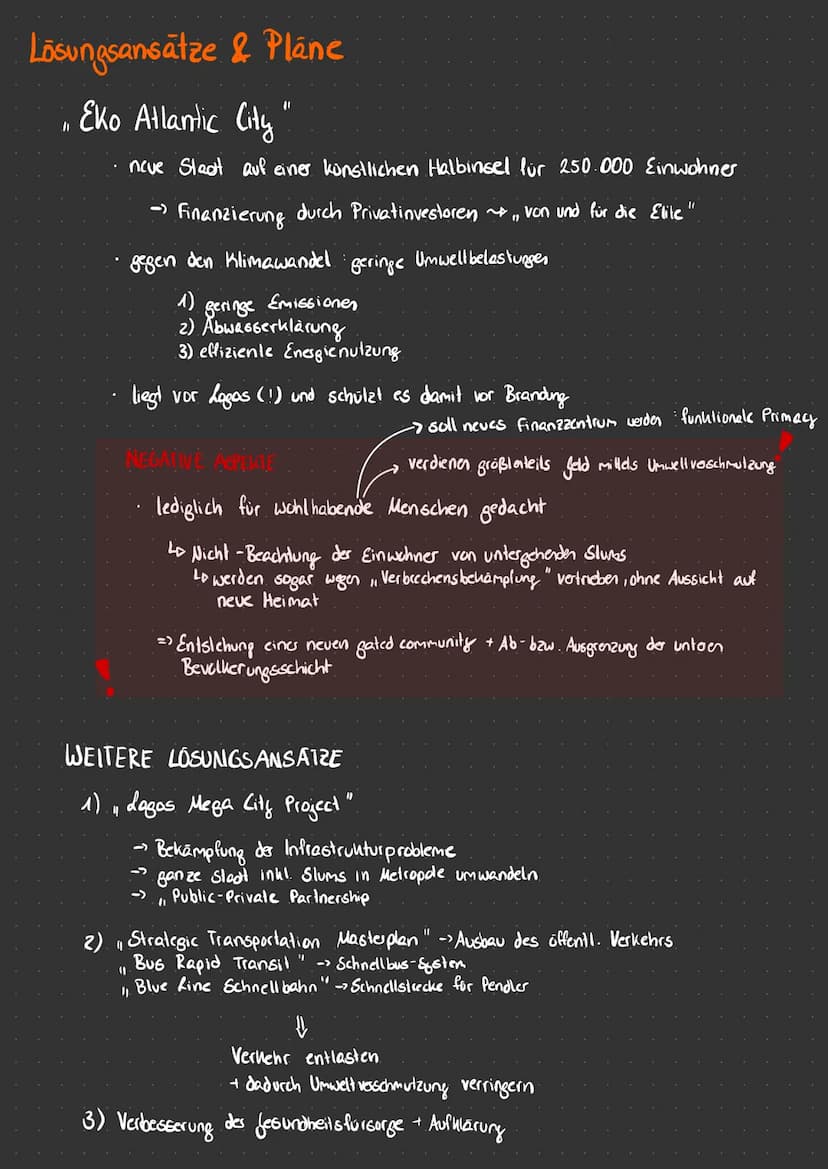 Lösungsansätze & Pläne
„Eko Atlantic City"
· neue Stadt auf einer künstlichen Halbinsel für 250.000 Einwohner
-> Finanzierung durch Privatinvestoren ↝ „von und für die Elite"
· gegen den Klimawandel : geringe Umweltbelastungen
1) geringe Emissionen
2) Abwasserklärung
3) effiziente Energienutzung
· liegt vor Lagos (!) und schützt es damit vor Brandung
-> soll neues Finanzzentrum werden : funktionale Primacy
NEGATIVE ASPEKTE
-> verdienen größtenteils Geld mittels Umweltverschmutzung !
· lediglich für wohlhabende Menschen gedacht
↳ Nicht-Beachtung der Einwohner von untergehenden Slums
↳ werden sogar wegen „Verbrechensbekämpfung" vertrieben, ohne Aussicht auf
neue Heimat
=> Entstehung einer neuen gated community + Ab- bzw. Ausgrenzung der unteren
Bevölkerungsschicht
!
WEITERE LÖSUNGSANSÄTZE
1) „Lagos Mega City Project"
-> Bekämpfung der Infrastrukturprobleme
-> ganze Stadt inkl. Slums in Metropole umwandeln
-> „Public-Private Partnership
2) „Strategic Transportation Masterplan" -> Ausbau des öffentl. Verkehrs
„Bus Rapid Transit" -> Schnellbus-System
„Blue Line Schnellbahn" -> Schnellstrecke für Pendler
⇓
Verkehr entlasten
+ dadurch Umweltverschmutzung verringern
3) Verbesserung der Gesundheitsfürsorge + Aufklärung